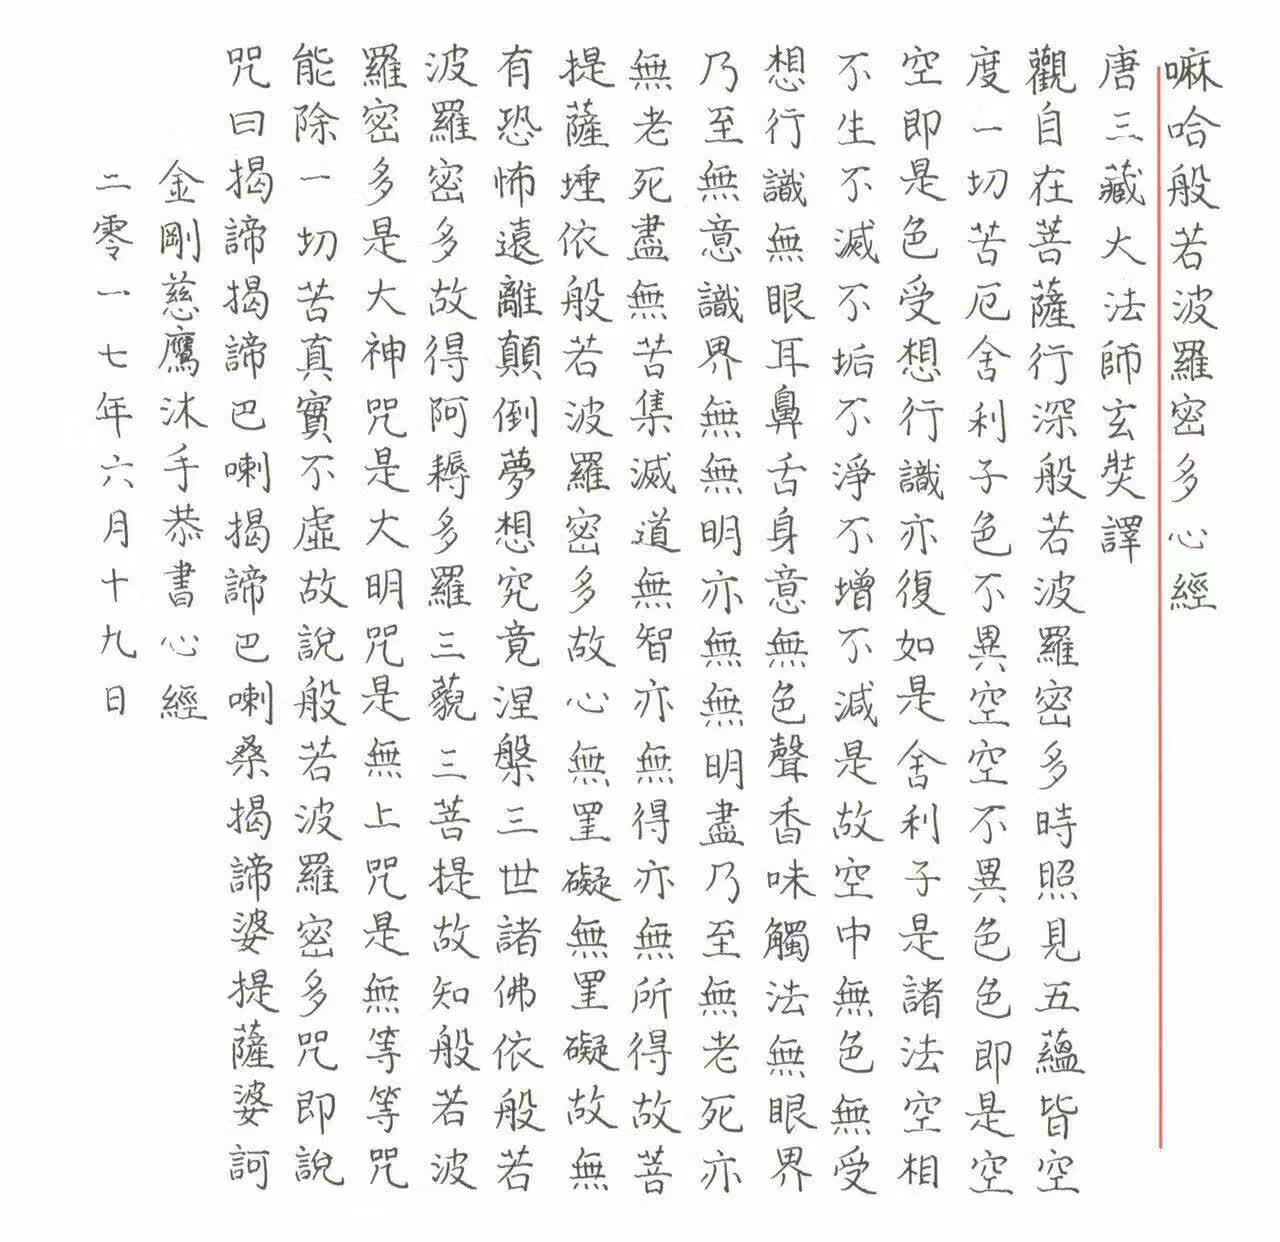 嘛哈般若波羅密多心經
唐三藏大法師玄奘譯
觀自在菩薩行深般若波羅密多時照見五蘊皆空
度一切苦厄舍利子色不異空空不異色色即是空
空即是色受想行識亦復如是舍利子是諸法空相
不生不滅不垢不淨不增不減是故空中無色無受
想行識無眼耳鼻舌身意無色聲香味觸法無眼界
乃至無意識界無無明亦無無明盡乃至無老死亦
無老死盡無苦集滅道無智亦無得亦無所得故菩
提薩埵依般若波羅密多故心無罣礙無罣礙故無
有恐怖遠離顛倒夢想究竟涅槃三世諸佛依般若
波羅密多故得阿耨多羅三藐三菩提故知般若波
羅密多是大神咒是大明咒是無上咒是無等等咒
能除一切苦真實不虛故說般若波羅密多咒即說
咒曰揭諦揭諦巴喇揭諦巴喇桑揭諦婆提薩婆訶
金剛慈鷹沐手恭書心經
二零一七年六月十九日